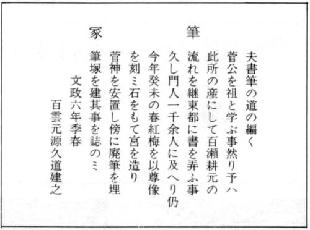 筆冢
夫書筆の道の編く
菅公を祖と学ぶ事然り予ハ
此所の産にして百瀬耕元の
流れを継東都に書を弄ふ事
久し門人一千余人に及へり仍
今年癸未の春紅梅を以尊像
を刻ミ石をもて宮を造り
菅神を安置し傍に廃筆を埋
筆塚を建其事を誌のミ
文政六年季春
百雲元源久道建之